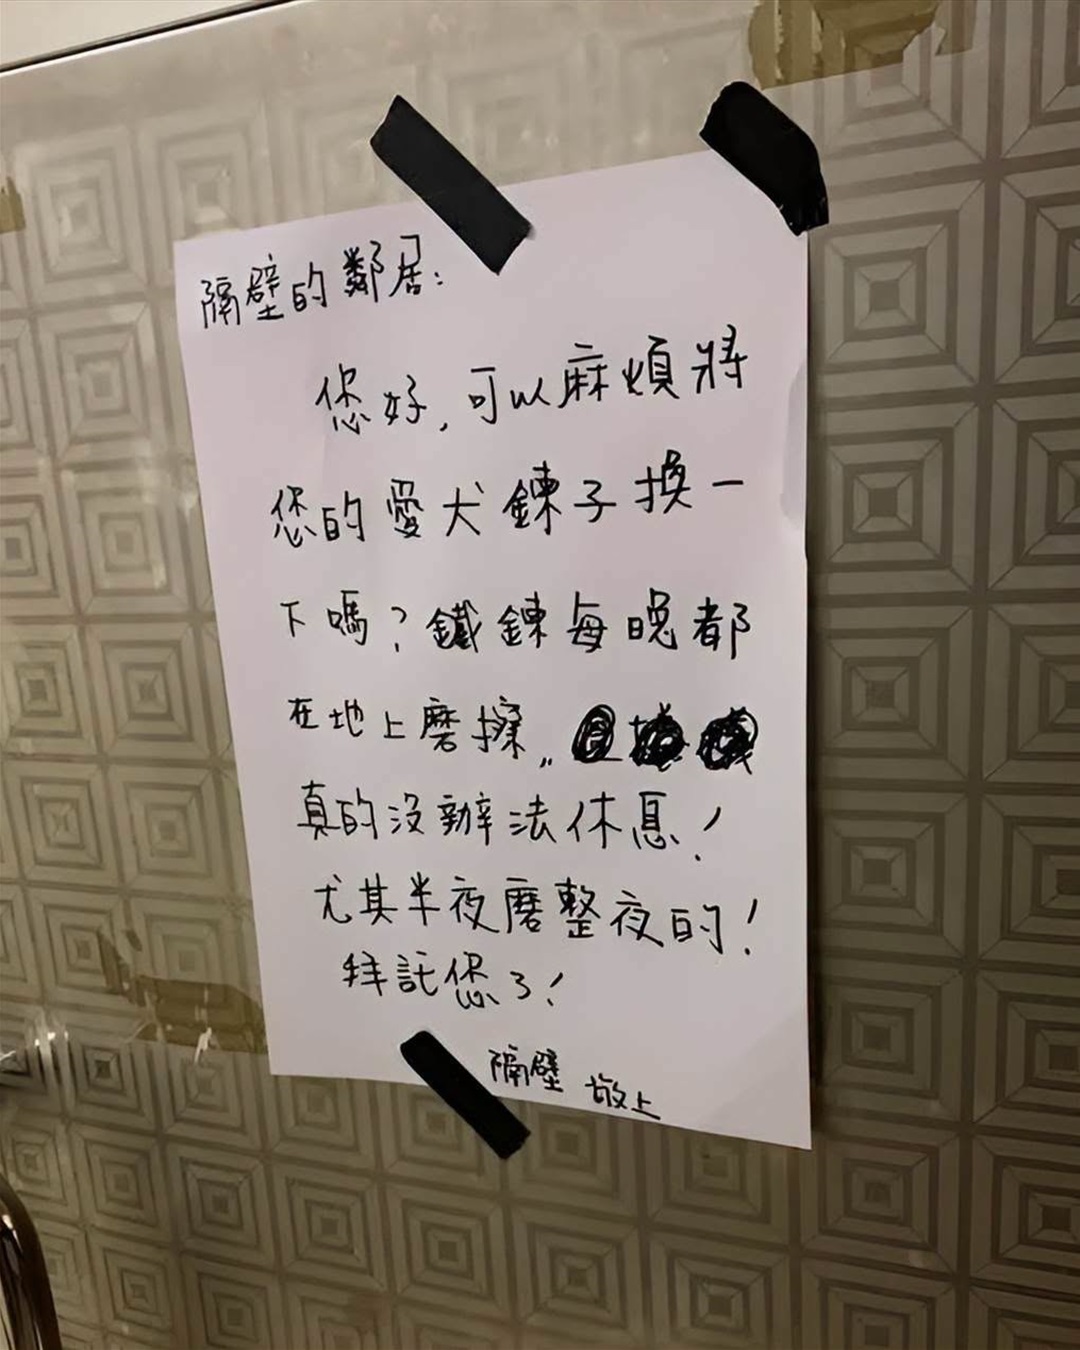 隔壁的鄰居：
您好，可以麻煩將
您的愛犬鍊子換一
下嗎？鐵鍊每晚都
在地上磨擦，，
真的沒辦法休息！
尤其半夜磨整夜的！
拜託您了！
隔壁 敬上